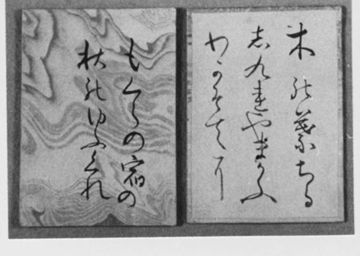 木の葉ちる
しくれやまかふ
わかそてに
むくらの宿の
秋のゆふくれ